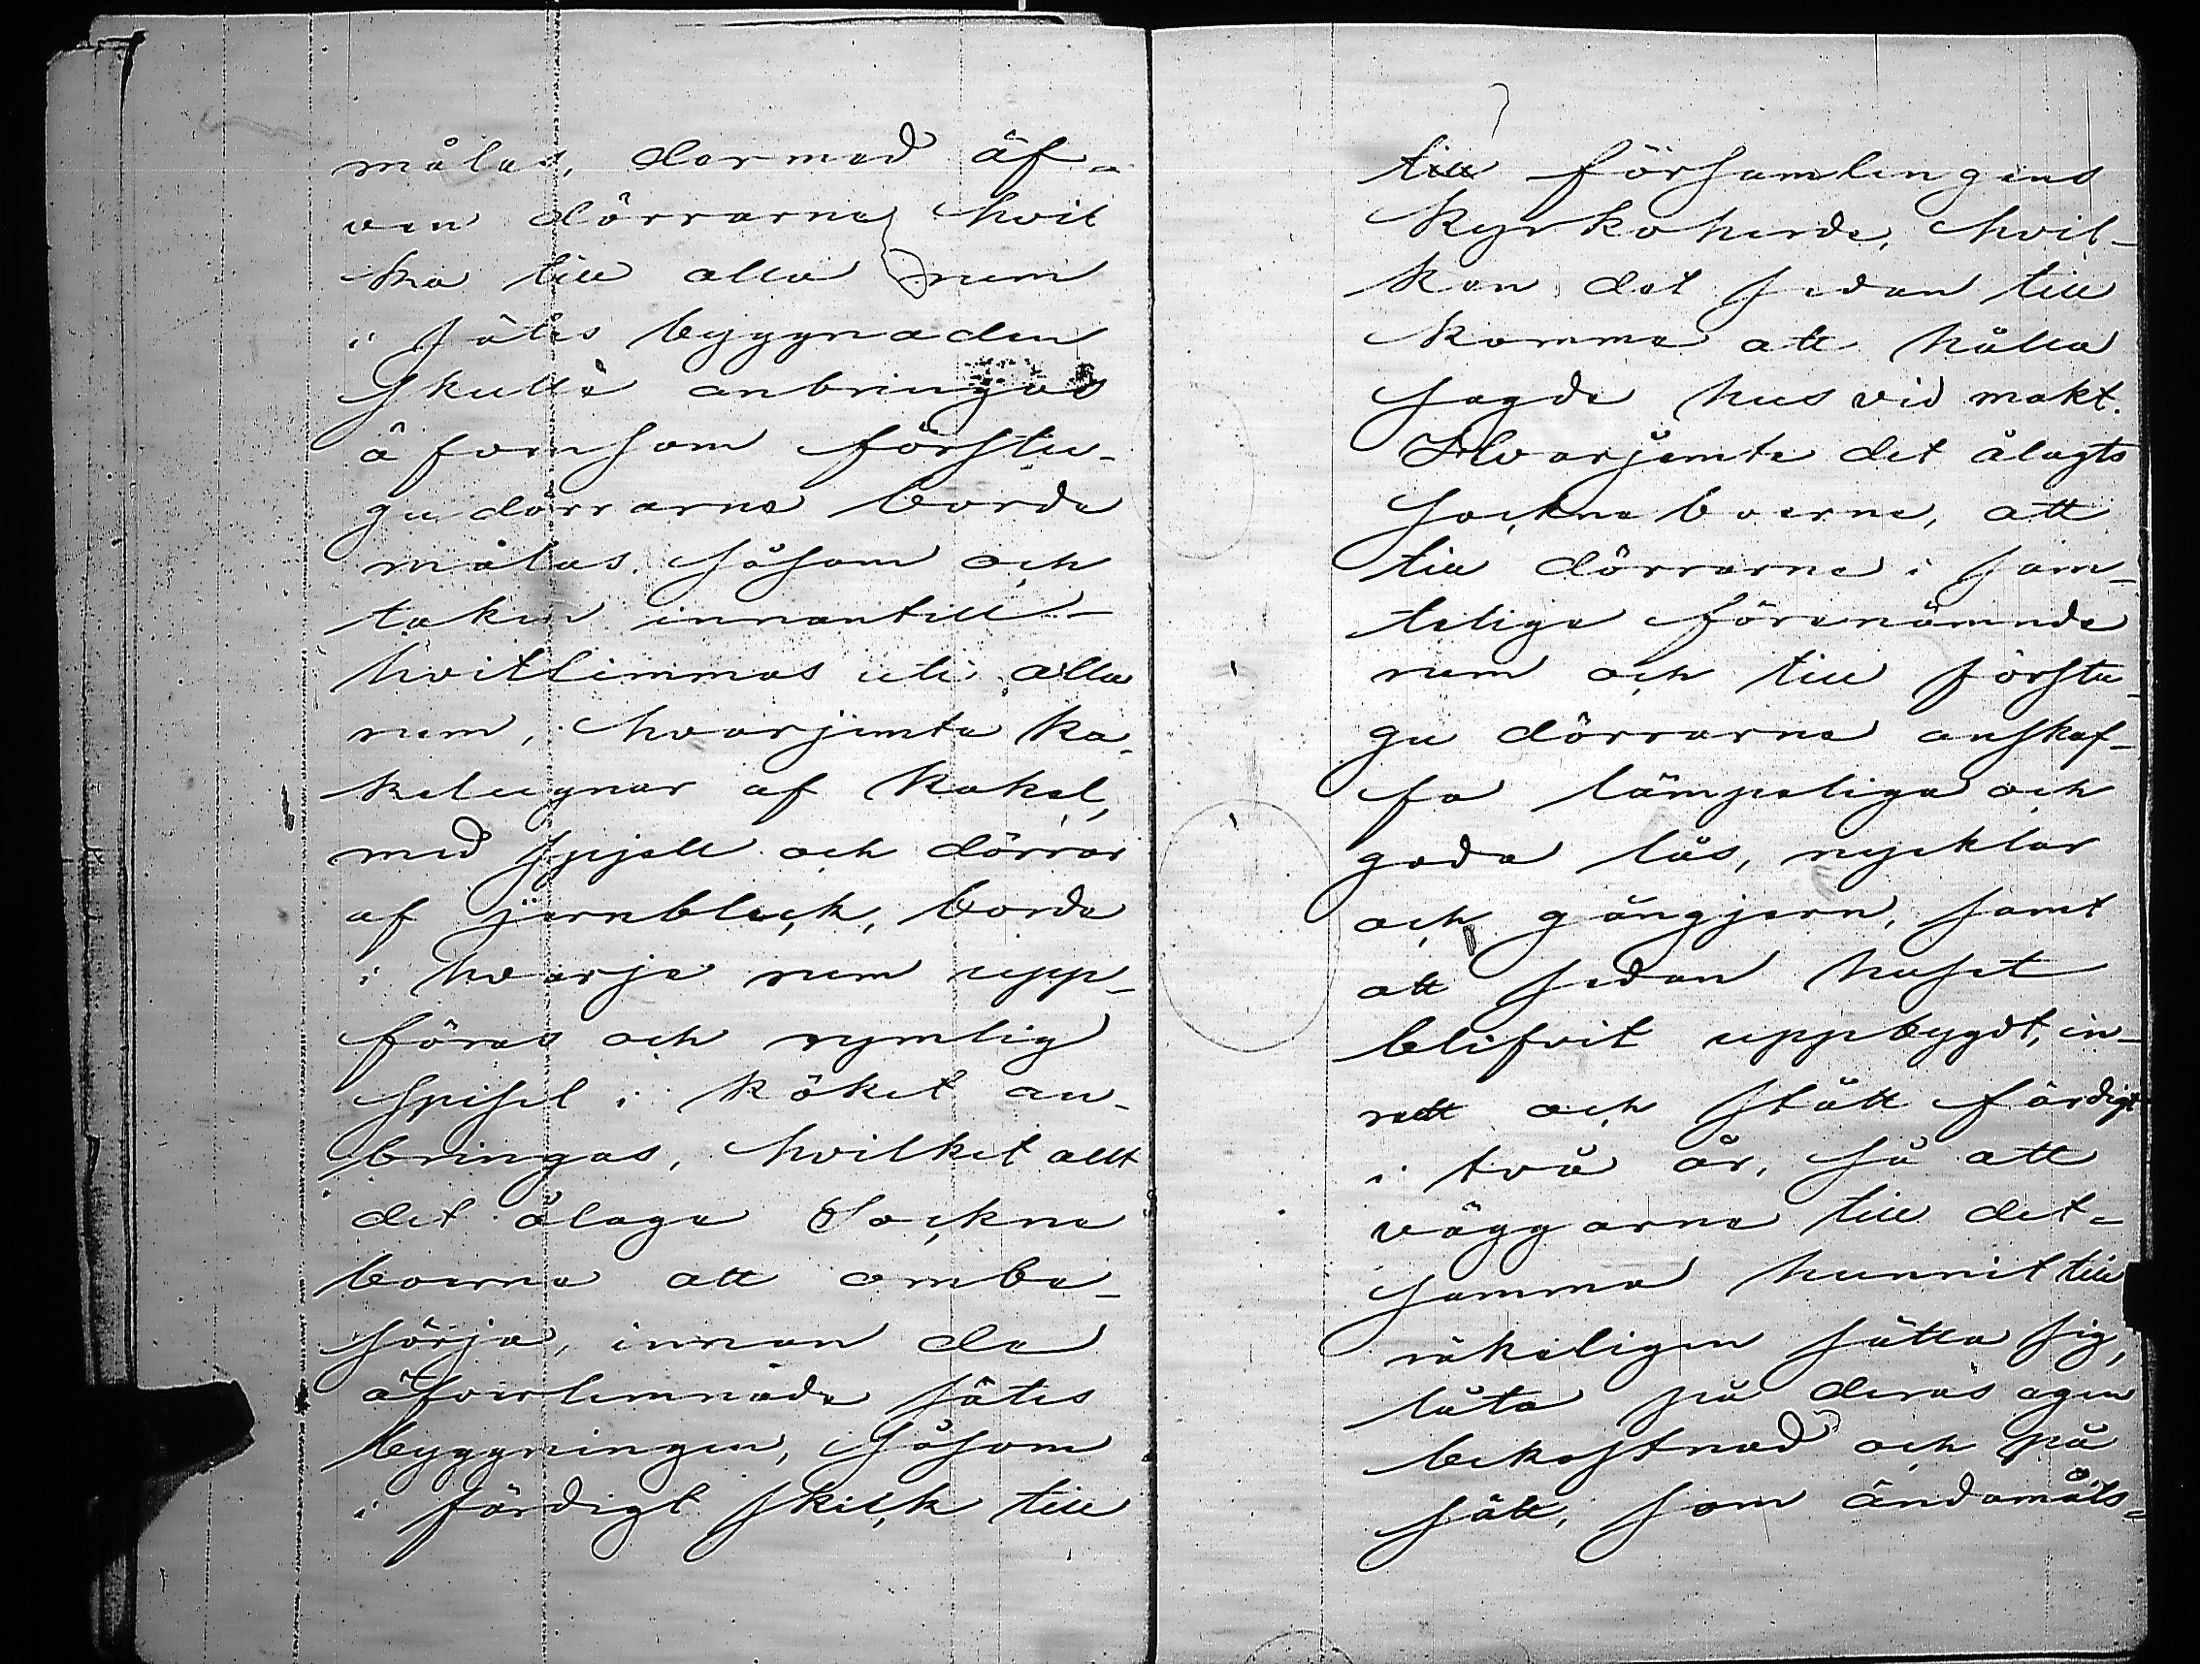 målas, dermed äf-
ven dörrarne hvil
ka till alla rum
i sätes byggnaden
skulle anbringas
äfvensom förstu-
gu dörrarne borde
målas, såsom och
taken innantill
hvitlimmas uti alla
rum, hvarjemte ka-
kelugnar af kakel,
med spjell och dörrar
af jernbleck, borde
i hvarje rum upp-
föras och rymlig
spisel i köket an-
bringas, hvilket allt
det ålage Sockne
boerne att ombe-
sörja, innan de
öfverlemnade sätes
byggningen, såsom
i färdigt skick till
till församlingens
Kyrkoherde, hvil-
ken det sedan till
komme att hålla
sagde hus vid makt.
Hvarjemte det ålagts
sockneboerne, att
till dörrarne i sam-
teliga förenämnde
rum och till förstu-
gu dörrarne anskaf-
fa lämpeliga och
goda lås, nycklar
och gångjern, samt
att sedan huset
blifvit uppbygdt, in-
redt och stått färdigt
i två år, så att
väggarne till det-
samma hunnit till
räkeligen sätta sig,
låta på deras egen
bekostnad och på
sätt, som ändamåls-